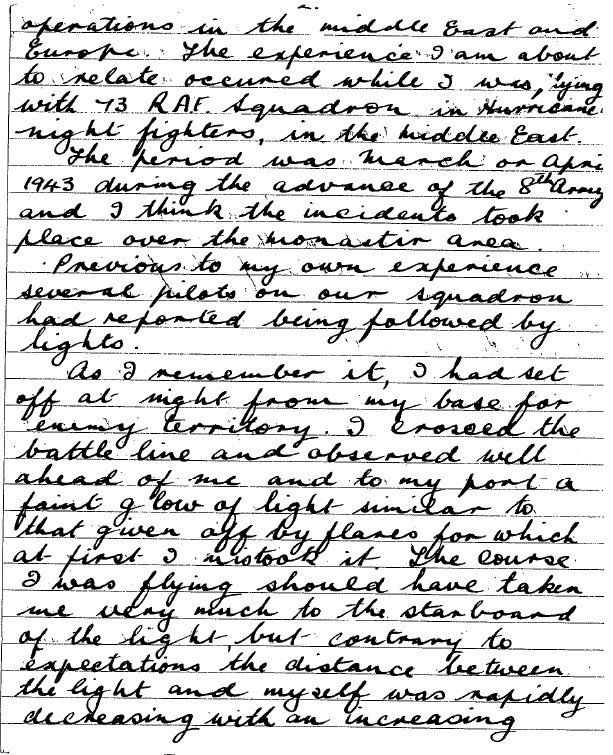 operations in the middle East and
Europe. The experience I am about
to relate occured while I was, flying
with 73 RAF. Squadron in Hurricane
night fighters, in the middle East.
The period was March or April
1943 during the advance of the 8th Army
and I think the incidents took
place over the monastir area.
Previous to my own experience
several pilots on our squadron
had reported being followed by
lights.
As I remember it, I had set
off at night from my base for
enemy territory. I crossed the
battle line and observed well
ahead of me and to my port a
faint glow of light similar to
that given off by flares for which
at first I mistook it. The course
I was flying should have taken
me very much to the starboard
of the light, but contrary to
expectations the distance between
the light and myself was rapidly
decreasing with an increasing